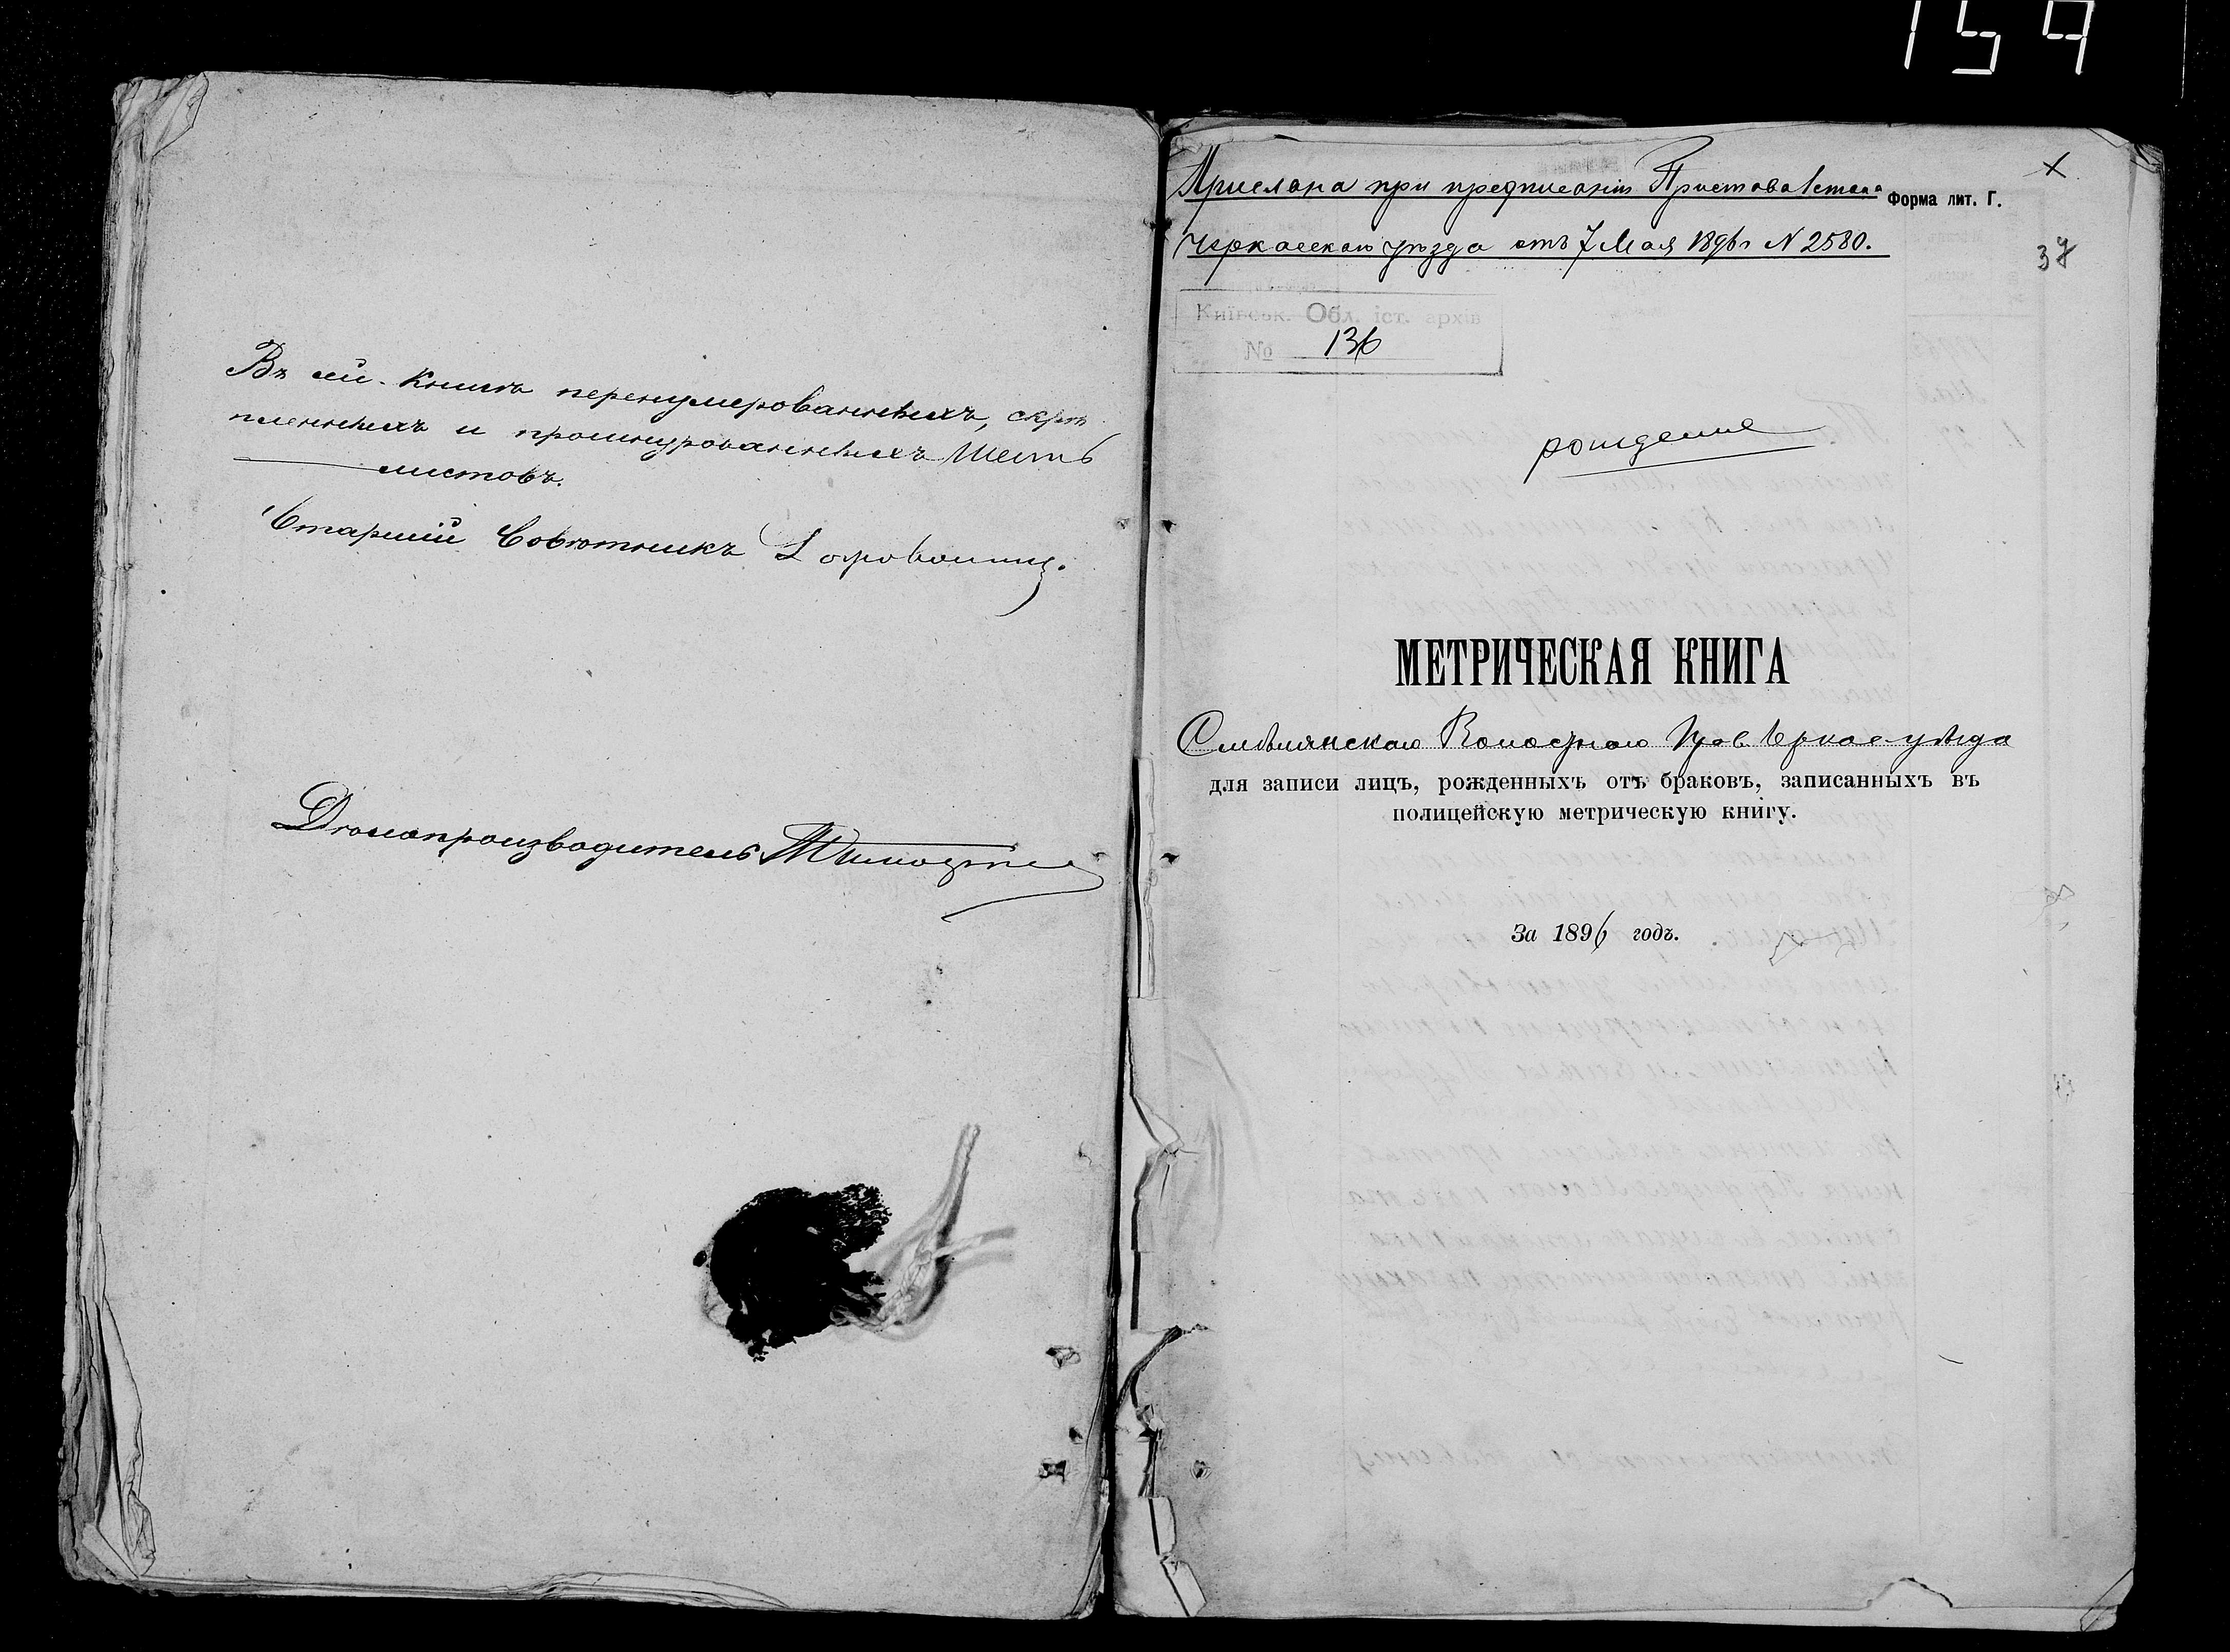 Въ сей книгѣ перенумерованныхъ, скрѣ
пленныхъ и прошнурованныхъ шесть
листовъ.
Старшій Совѣтникъ
Дѣлопроизводитель
154
Прислана при предписаніи Пристава 1 стана
Форма лит. Г.
Черкасскаго уѣзда отъ 7 Мая 1896 г N 2580.
Київськ. Обл. іст. архів
№ 136
рождение
МЕТРИЧЕСКАЯ КНИГА
Смѣлянскаго Волостнаго Прав. Черкас. уѣзда
для записи лицъ, рожденныхъ отъ браковъ, записанныхъ въ
полицейскую метрическую книгу.
За 1896 годъ.